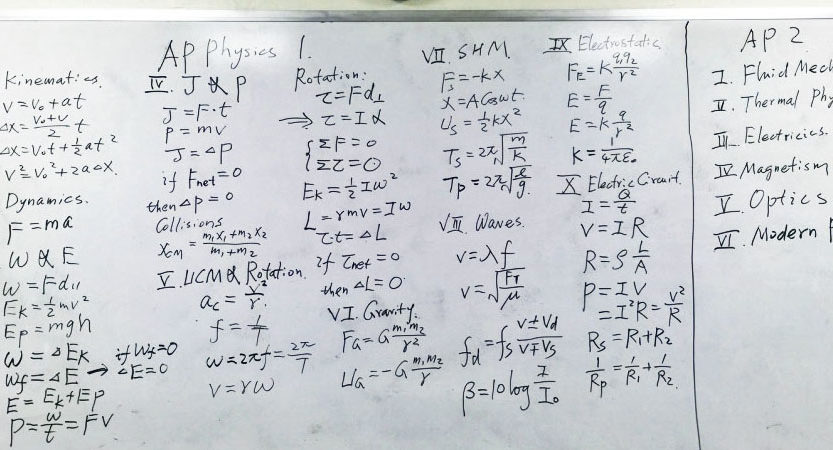 AP Physics 1.
Kinematics.
V = V₀ + at
ΔX = (V₀+V)/2 t
ΔX = V₀t + ½at²
V² = V₀² + 2aΔX.
Dynamics.
F = ma
W & E
W = Fd∥
E_K = ½mv²
E_P = mgh
W = ΔE_K
W_f = ΔE → if W_f = 0 ΔE = 0
E = E_K + E_P
P = W/t = FV
IV. J & P
J = F·t
P = mv
J = ΔP
if F_net = 0
then ΔP = 0
Collisions
X_CM = (m₁x₁+m₂x₂)/(m₁+m₂)
V. UCM & Rotation.
a_c = v²/r.
f = 1/T
ω = 2πf = 2π/T
V = rω
Rotation:
τ = Fd⊥
⇒ τ = Iα
{ΣF = 0
{Στ = 0
E_K = ½Iω²
L = rmv = Iω
τ·t = ΔL
if τ_net = 0
then ΔL = 0
VI. Gravity.
F_G = G m₁m₂/r²
U_G = -G m₁m₂/r
VII. SHM.
F_s = -kx
X = A cos ωt.
U_s = ½kx²
T_s = 2π√(m/k)
T_p = 2π√(ℓ/g).
VIII. Waves.
V = λf
V = √(F_T/μ)
f_d = f_s (V±V_d)/(V∓V_s)
β = 10 log I/I₀
IX Electrostatic
F_E = K q₁q₂/r²
E = F/q
E = K q/r²
K = 1/4πε₀
X Electric Circuit.
I = Q/t
V = IR
R = ρ L/A
P = IV
= I²R = V²/R
R_S = R₁+R₂
1/R_P = 1/R₁ + 1/R₂.
AP 2
I. Fluid Mech
II. Thermal Phy
III. Electricies.
IV. Magnetism
V. Optics
VI. Modern